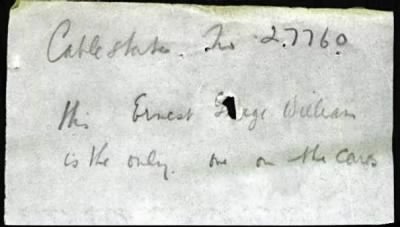 Cable states. No 27760.
this Ernest George William
is the only one on the cards